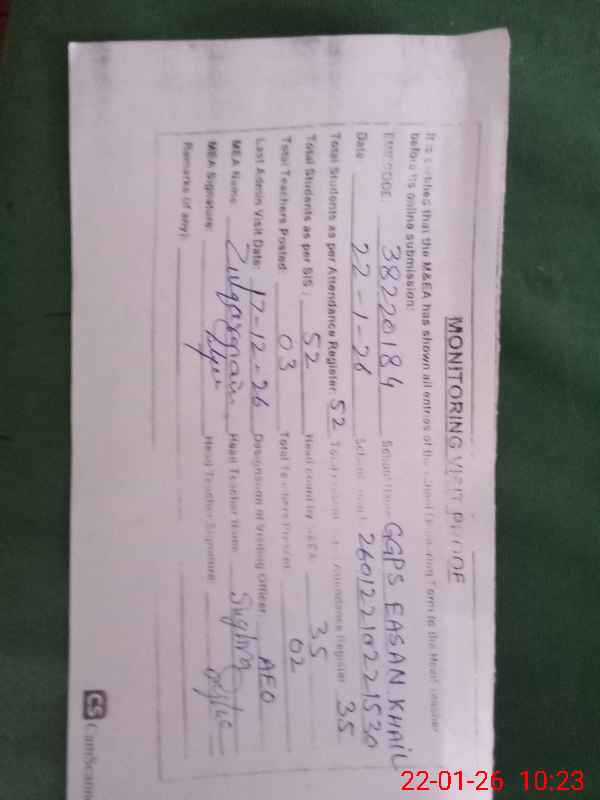 MONITORING VISIT PROOF
It is certified that the M&EA has shown all entries of the Monitoring Form to the Head Teacher
before its online submission:
EMIS CODE: 38220184 School Name GGPS EASAN KHAIL
Date: 22-1-26 School 260122102221530
Total Students as per Attendance Register: 52 Total Attendance Register 35
Total Students as per SIS: 52 Head count by M&EA: 35
Total Teachers Posted: 03 Total Teachers Present 02
Last Admin Visit Date: 17-12-26 Designation of Visiting Officer: AEO
MEA Name: Zulqarnain Head Teacher Name: Sughra
MEA Signature: Head Teacher Signature:
Remarks (if any):
CS CamScanner
22-01-26 10:23